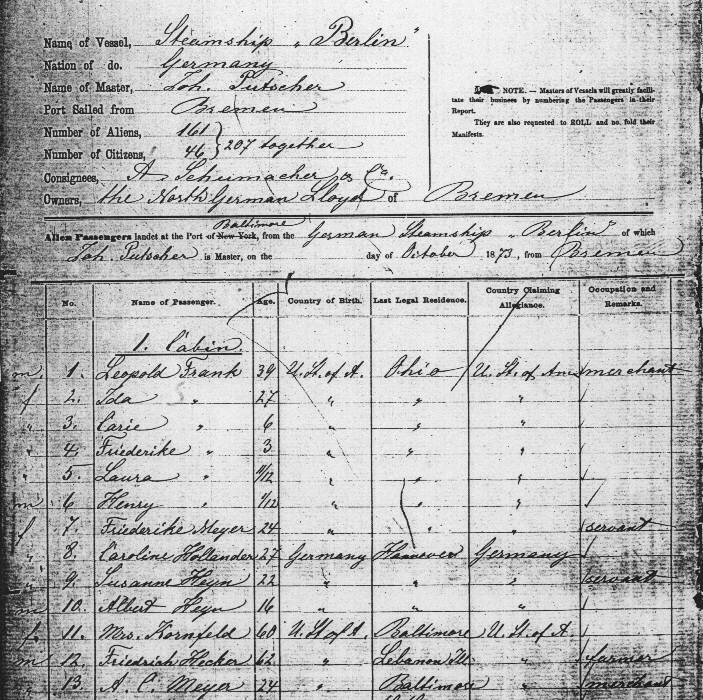 Name of Vessel, Steamship „Berlin"
Nation of do. Germany
Name of Master, Joh. Putscher
Port Sailed from Bremen
Number of Aliens, 161
Number of Citizens, 46 } 207 together
Consignees, A Schumacher & Co.
Owners, the North German Lloyd of Bremen
NOTE. — Masters of Vessels will greatly facili-
tate their business by numbering the Passengers in their
Report.
They are also requested to ROLL and no. fold their
Manifests.
Baltimore
Alien Passengers landet at the Port of New-York, from the German Steamship „Berlin" of which
Joh. Putscher is Master, on the day of October 1873, from Bremen
No. Name of Passenger. Age. Country of Birth. Last Legal Residence. Country Claiming Allegiance. Occupation and Remarks.
1. Cabin.
m 1. Leopold Frank 39 U. St. of A. Ohio U. St. of Am merchant
f 2. Ida " 27 " " "
" 3. Carie " 6 " " "
" 4. Friederike " 3 " " "
" 5. Laura " 11/12 " " "
m 6 Henry " 1/12 " " "
f 7. Friederike Meyer 24 " " " servant
" 8. Caroline Hollander 27 Germany Hannover Germany
" 9. Susanne Heyn 22 " " " servant
m 10. Albert Heyn 16 " " "
f. 11. Mrs. Kornfeld 60 U. St. of A. Baltimore U. St. of A
m 12. Friedrich Hecker 62. " Lebanon Ill. " farmer
" 13. A. C. Meyer 24 " Baltimore " merchant